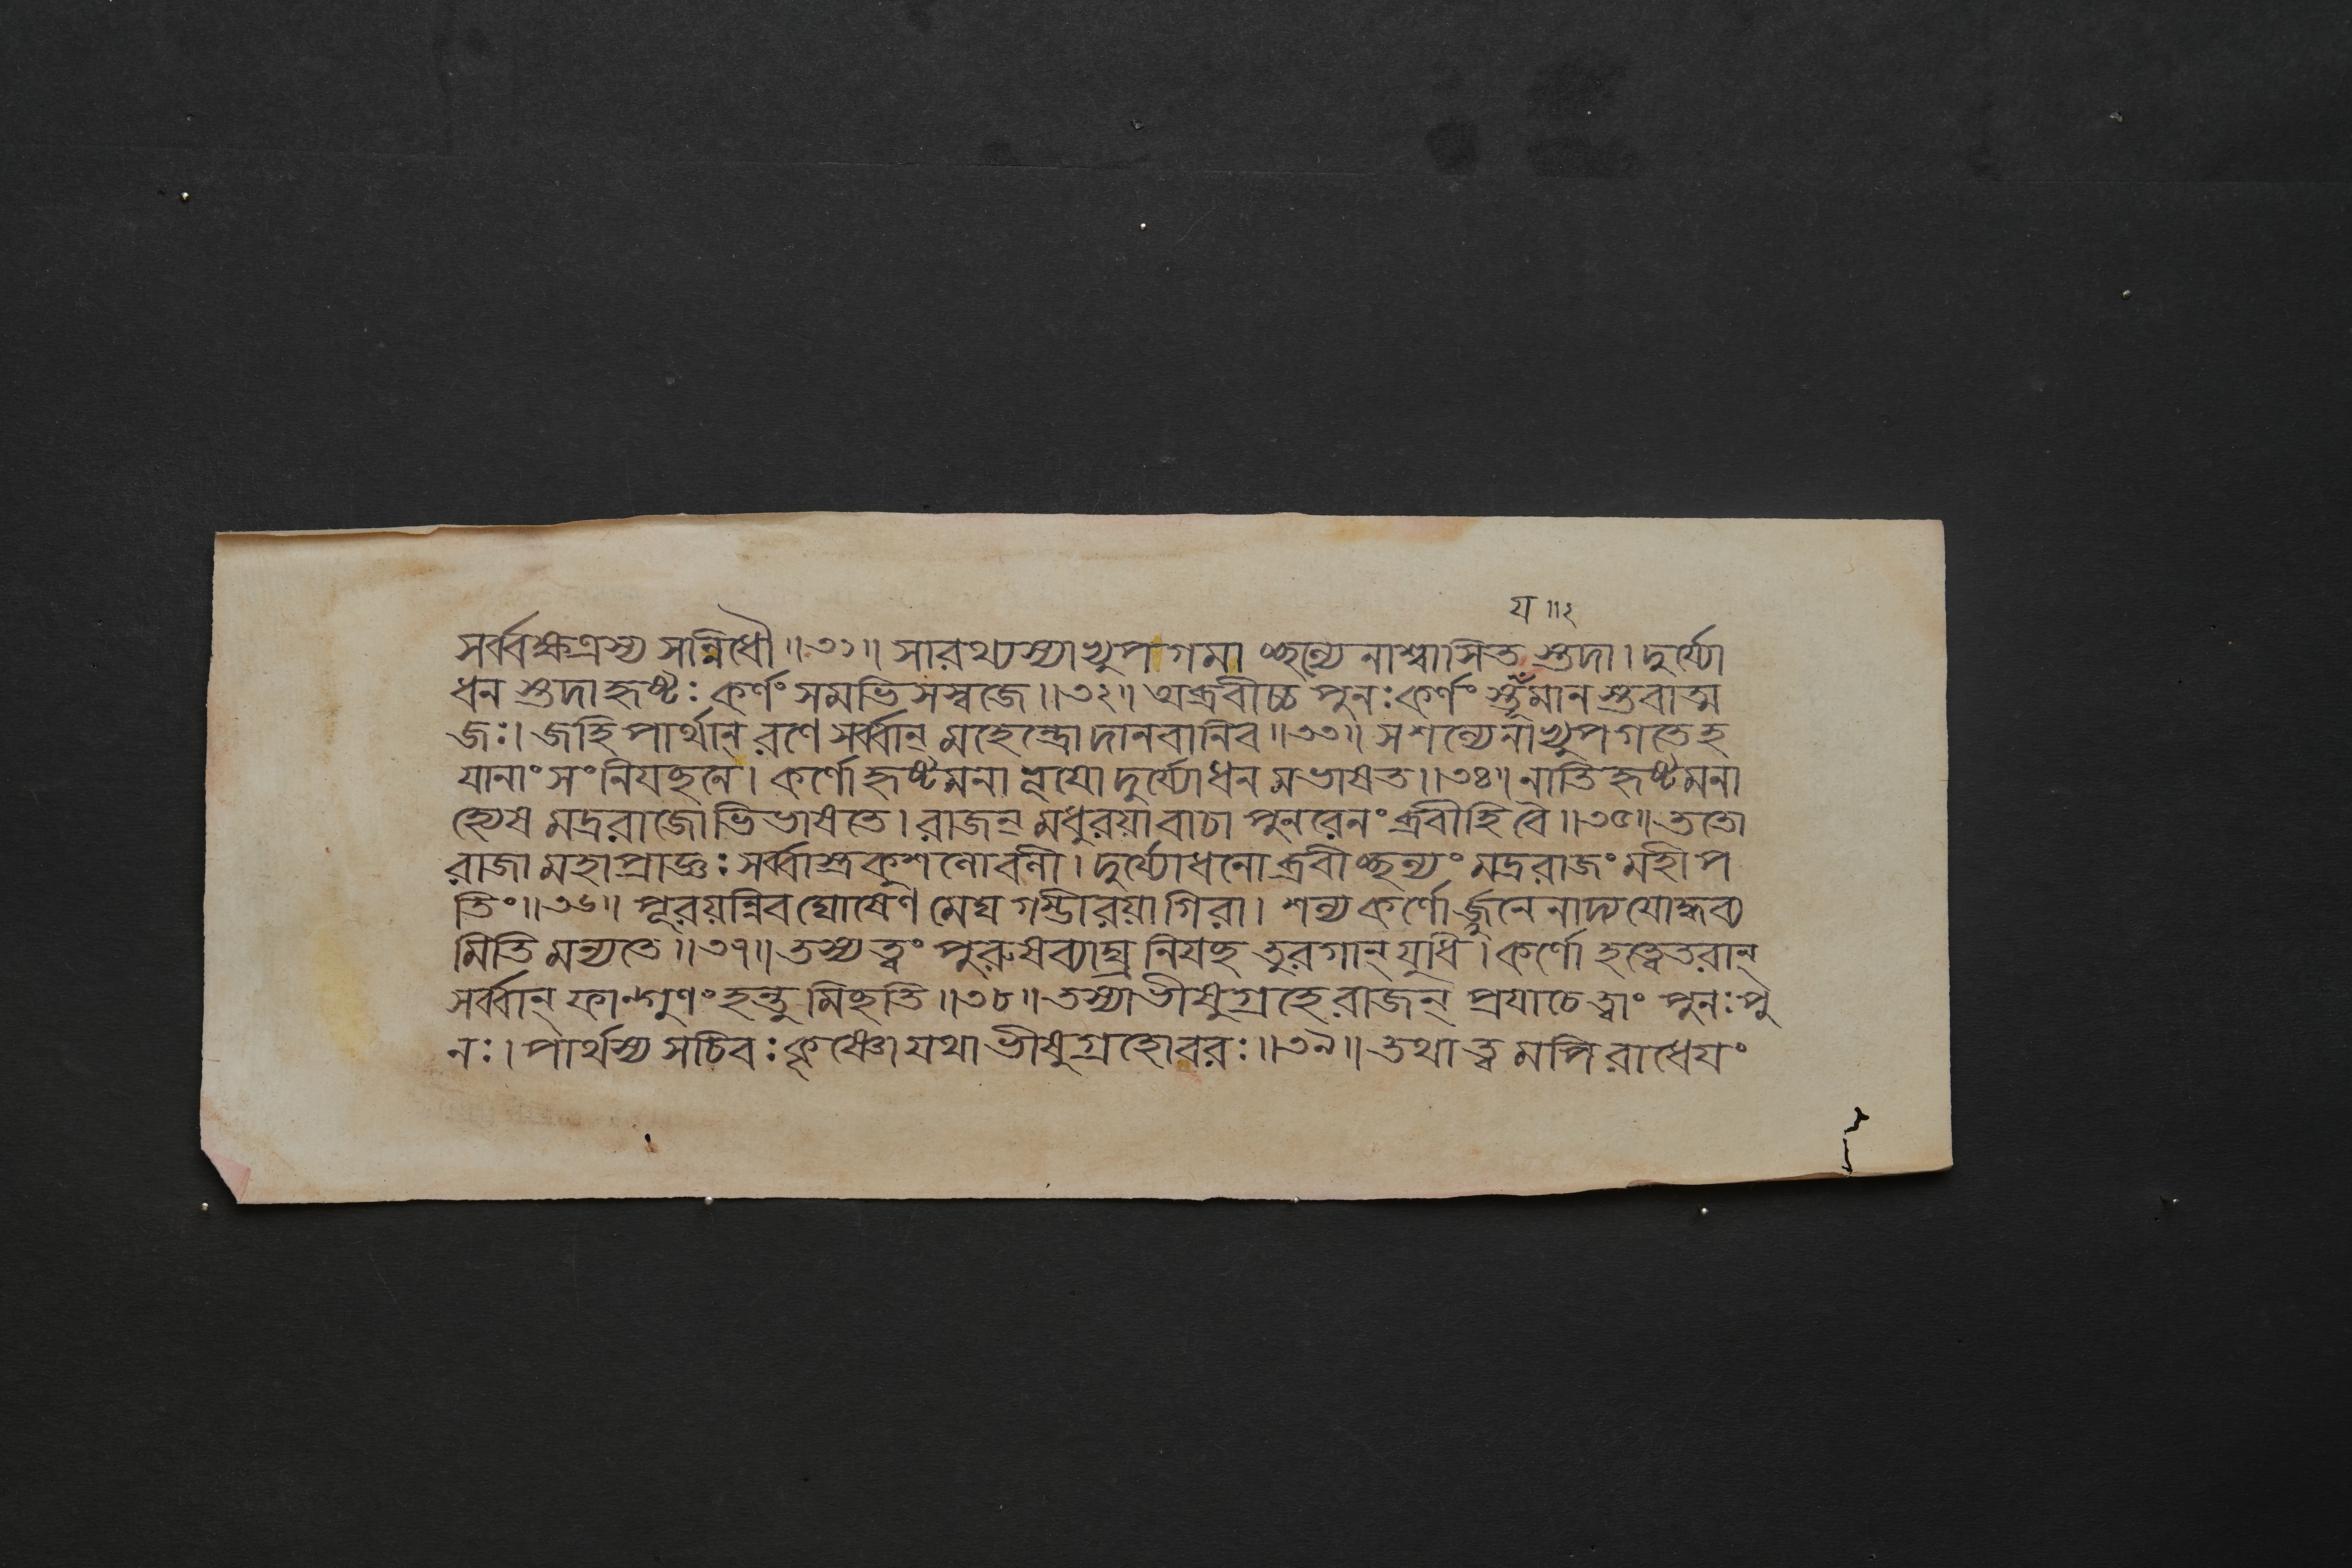 য ॥২
সর্ব্বক্ষত্রস্য সন্নিধৌ ॥৩১॥ সারথ্যস্যাভ্যুপগমাচ্ছল্যেনাশ্বাসিত স্তদা। দুর্য্যো
ধন স্তদাহৃষ্টঃ কর্ণং সমভিসস্বজে ॥৩২॥ অব্রবীচ্চ পুনঃ কর্ণং স্তূয়মান স্তবাত্ম
জঃ। জহি পার্থান্ রণে সর্ব্বান্ মহেন্দ্রো দানবানিব ॥৩৩॥ সশল্যেনাভ্যুপগতেহ
যানাং সংনিযচ্ছনে। কর্ণো হৃষ্টমনা ভূয়ো দুর্য্যোধন মভাষত ॥৩৪॥ নাতি হৃষ্টমনা
হ্যেষ মদ্ররাজোভিভাষতে। রাজন্ মধুরয়াবাচা পুনরেনং ব্রবীহি বৈ ॥৩৫॥ ততো
রাজা মহাপ্রাজ্ঞঃ সর্ব্বাস্ত্রকুশলোবলী। দুর্য্যোধনোব্রবীচ্ছল্যং মদ্ররাজং মহীপ
তিং ॥৩৬॥ পূরয়ন্নিব ঘোষেণ মেঘ গম্ভীরয়া গিরা। শল্য কর্ণোর্জ্জুনেনাদ্য যোদ্ধব্য
মিতি মন্যতে ॥৩৭॥ তস্য ত্বং পুরুষব্যাঘ্র নিযচ্ছ তুরগান্ যুধি। কর্ণো হত্বেতরান্
সর্ব্বান্ ফাল্গুণং হন্তু মিচ্ছতি ॥৩৮॥ তস্যাভীষুগ্রহে রাজন্ প্রযাচে ত্বাং পুনঃ পু
নঃ। পার্থস্য সচিবঃ কৃষ্ণো যথাভীষুগ্রহোবরঃ ॥৩৯॥ তথা ত্বমপি রাধেয়ং